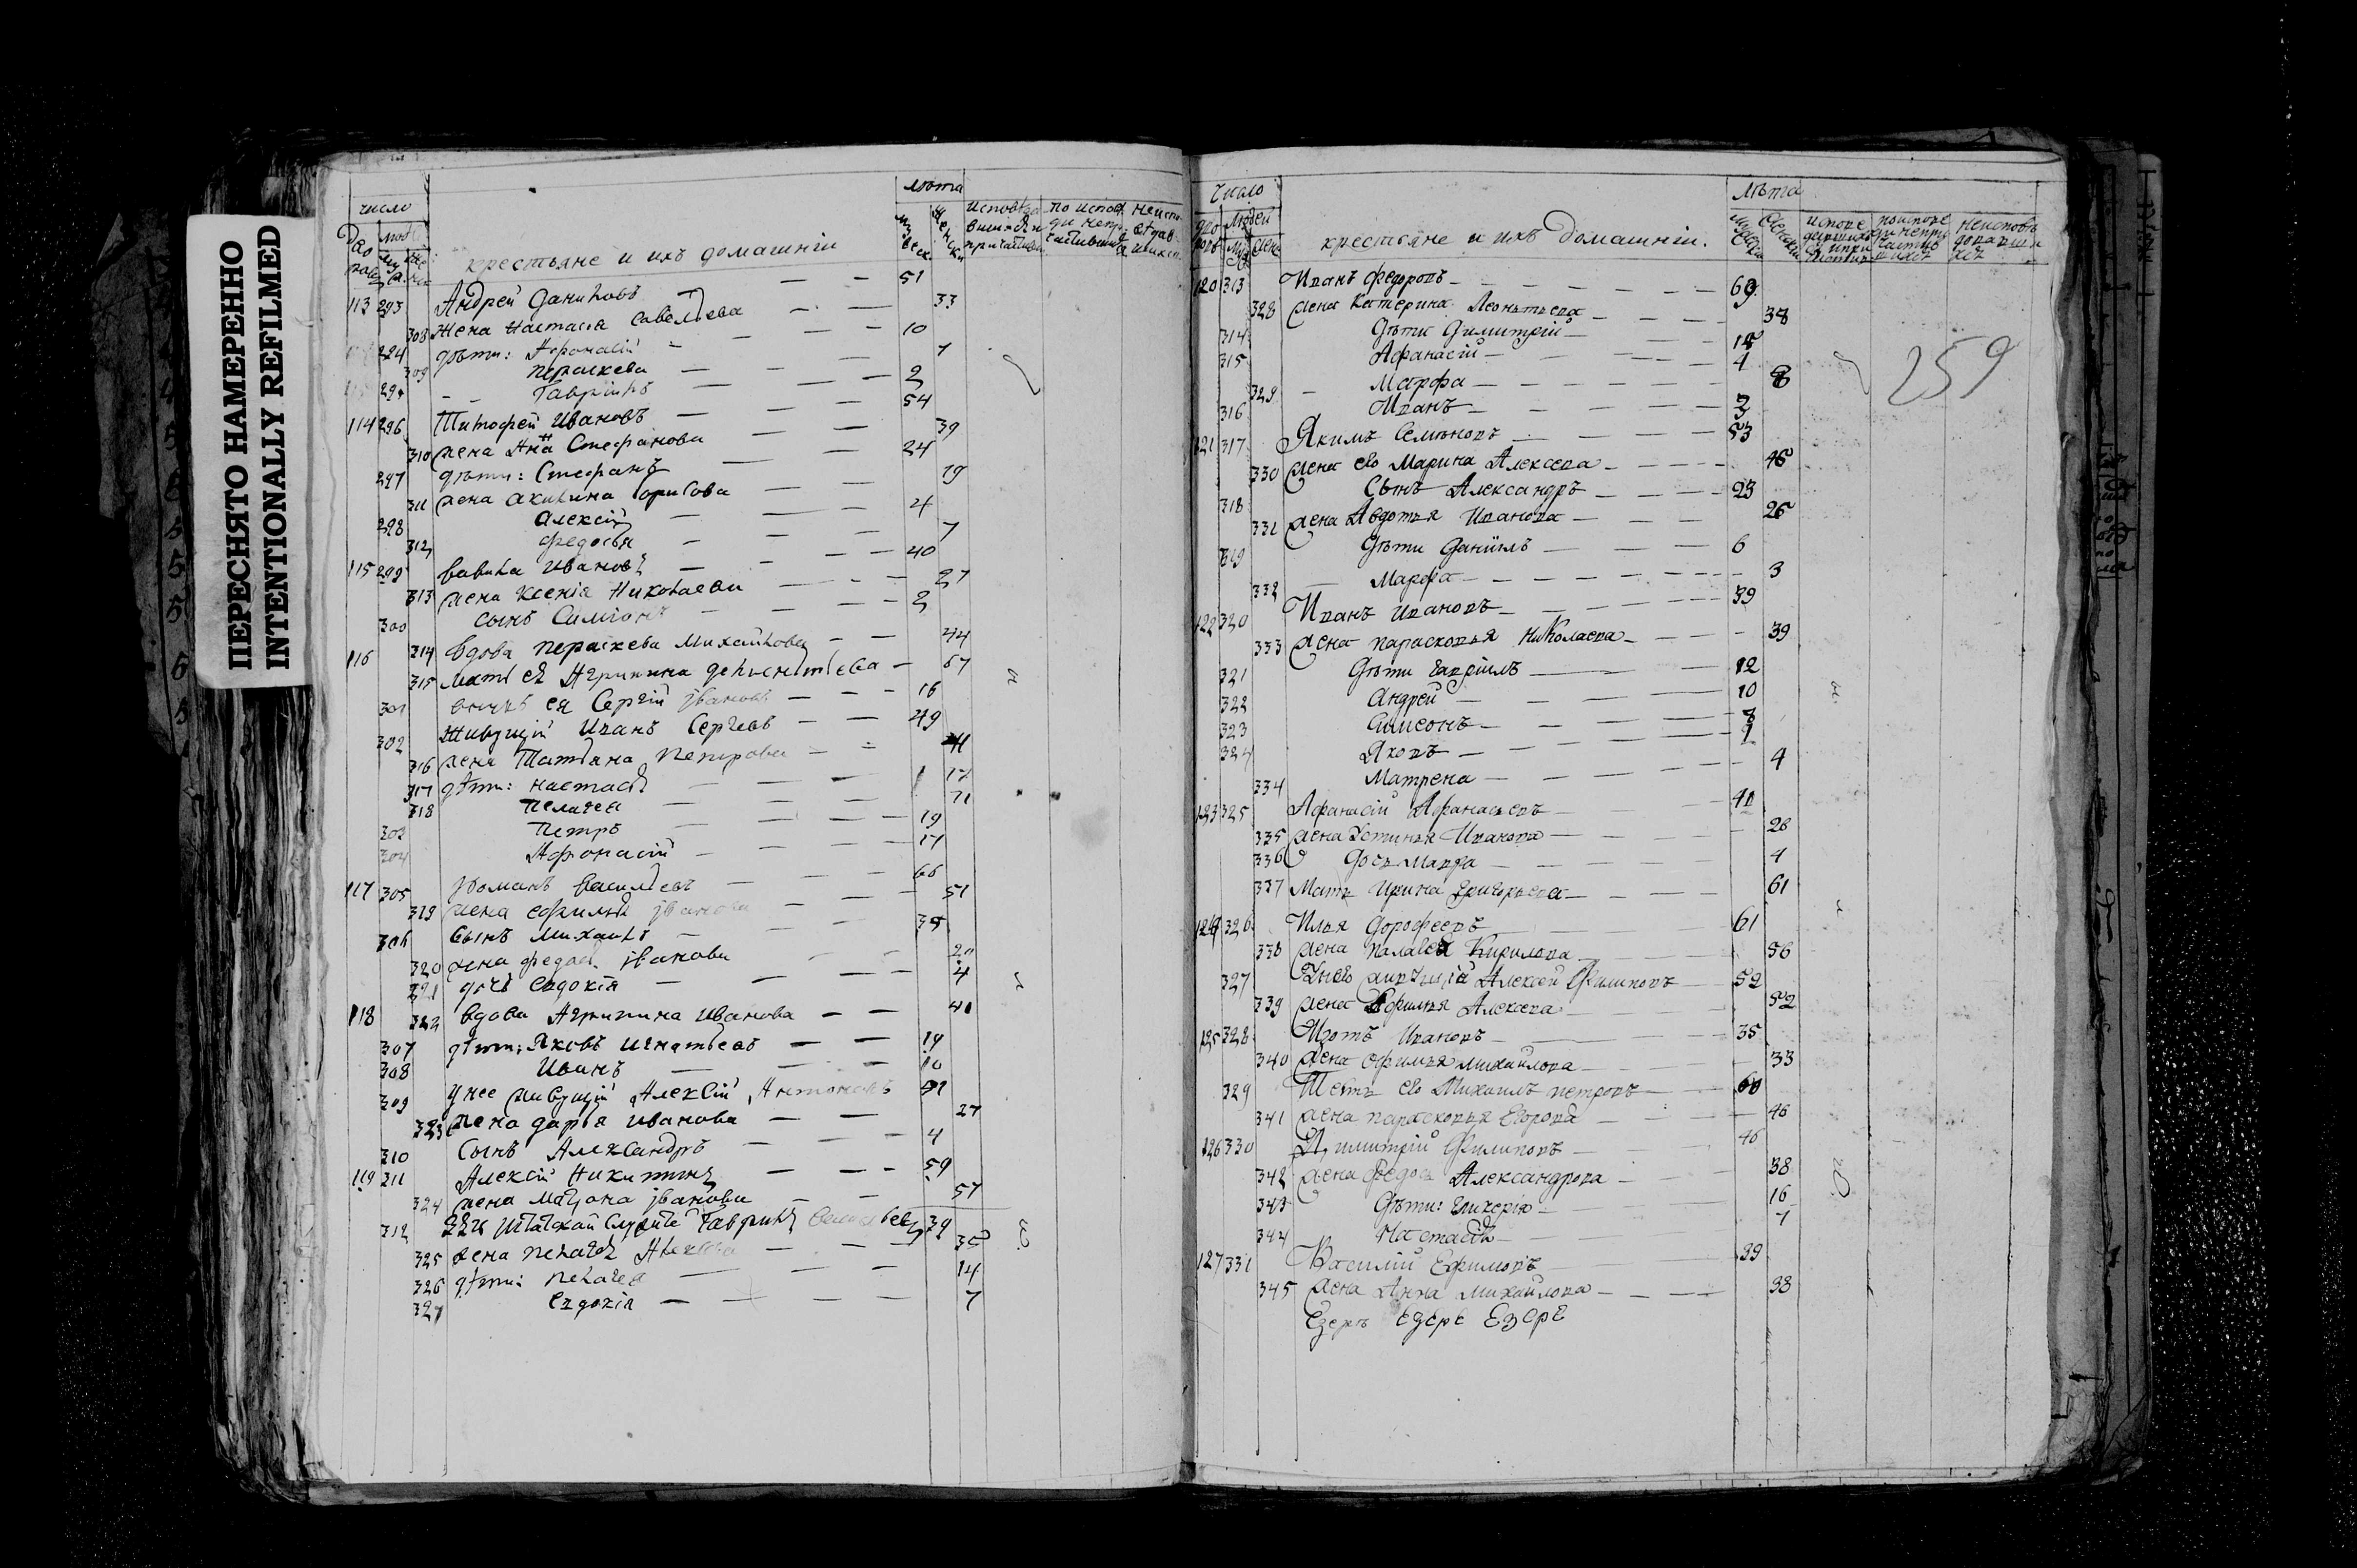 ПЕРЕСНЯТО НАМЕРЕННО
INTENTIONALLY REFILMED
число
лѣта
крестьяне и ихъ домашнїи
113 293 Андрей Даниловъ 51
308 жена Настасїя Савельева 33
294 дѣти: Афонасїй 10
309 Пераскева 7
Гаврїилъ 2
114 296 Тимофей Ивановъ 54
310 жена Анна Стефанова 39
297 дѣти: Стефанъ 24
311 жена Акилина Борисова 19
298 Алексїй 4
312 Федосья 7
115 299 Вавила Ивановъ 40
313 жена Ксенїя Николаева 27
300 сынъ Симїонъ 2
116 314 вдова Пераскева Михайлова 44
315 мать ея Агрипина 67
301 ея Сергїй Iвановъ 16
302 живущїй Иванъ Сергѣевъ 49
316 жена Татїана Петрова 41
317 дѣти: Настасїя 17
318 Пелагея 11
303 Петръ 19
304 Афонасїй 17
117 305 Романъ Василїевъ 66
319 жена Ефимья Iванова 51
306 сынъ Михаилъ 35
320 жена Федос. Iванова
321 дочь Евдокїя 4
118 322 вдова Агрипина Иванова 41
307 дѣти: Яковъ Игнатьевъ 19
308 Иванъ 10
309 у нее живущїй Алексїй Антоновъ
323 жена Дарья Иванова 27
310 сынъ Александръ 4
119 311 Алексїй Никитинъ 59
324 жена Матрона Iванова 57
312 Гаврилъ 39
325 жена Пелагея 35
326 дѣти: Пелагея 14
327 Евдокїя 7
число
лѣта
людей
крестьяне и ихъ домашнїи.
259
120 313 Иванъ Федоровъ 69
328 жена Катерина Леонтьева 38
314 дѣти Димитрїй 15
315 Афанасїй 4
329 Марфа 8
316 Иванъ
121 317 Якимъ Семеновъ 53
330 жена ево Марина Алексева 46
318 сынъ Александръ 23
331 жена Авдотья Иванова 26
319 дѣти Данїилъ 6
332 Марфа 3
122 320 Иванъ Ивановъ 39
333 жена Парасковья Николаева 39
321 дѣти Гаврїилъ 12
322 Андрей 10
323 Симеонъ 7
324 Яковъ 1
334 Матрена 4
123 325 Афанасїй Афанасьевъ 41
335 жена Устинья Иванова 26
336 дочь Марфа 4
337 Мать Ирина Григорьева 61
124 326 Илья Дорофеевъ 61
338 жена Палагея Кирилова 56
327 у нево живущїй Алексей Филиповъ 52
339 жена Ефимья Алексева 52
125 328 Изотъ Ивановъ 35
340 жена Ефимья Михайлова 33
329 Тесть ево Михаилъ Петровъ 60
341 жена Парасковья Егорова 46
126 330 Димитрїй Филиповъ 46
342 жена Федос. Александрова 38
343 дѣти: Гликерїя 16
344 Настасїя
127 331 Василїй Ефимовъ 39
345 жена Анна Михайлова 38